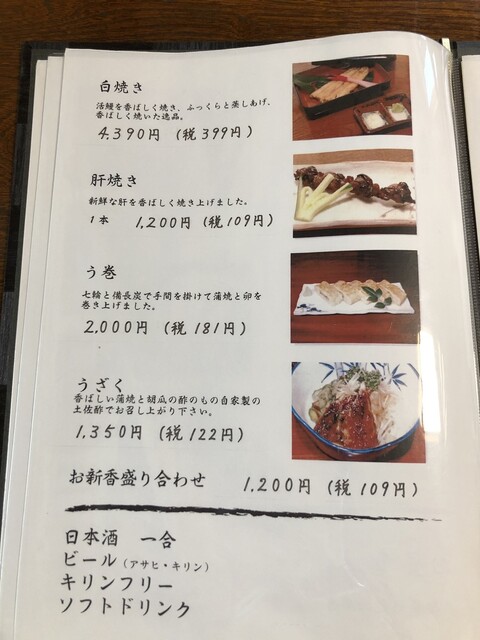 白焼き
活鰻を香ばしく焼き、ふっくらと蒸しあげ、
香ばしく焼いた逸品。
4,390円 (税399円)
肝焼き
新鮮な肝を香ばしく焼き上げました。
1本 1,200円 (税109円)
う巻
七輪と備長炭で手間を掛けて蒲焼と卵を
巻き上げました。
2,000円 (税181円)
うざく
香ばしい蒲焼と胡瓜の酢のもの自家製の
土佐酢でお召し上がり下さい。
1,350円 (税122円)
お新香盛り合わせ 1,200円 (税109円)
日本酒 一合
ビール (アサヒ・キリン)
キリンフリー
ソフトドリンク